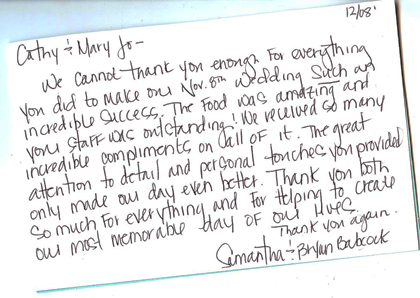 12/08
Cathy & Mary Jo -
We cannot thank you enough for everything
you did to make our Nov. 8th wedding such an
incredible success. The food was amazing and
your staff was outstanding! We received so many
incredible compliments on all of it. The great
attention to detail and personal touches you provided
only made our day even better. Thank you both
so much for everything and for helping to create
our most memorable day of our lives.
Thank you again.
Samantha & Bryan Babcock